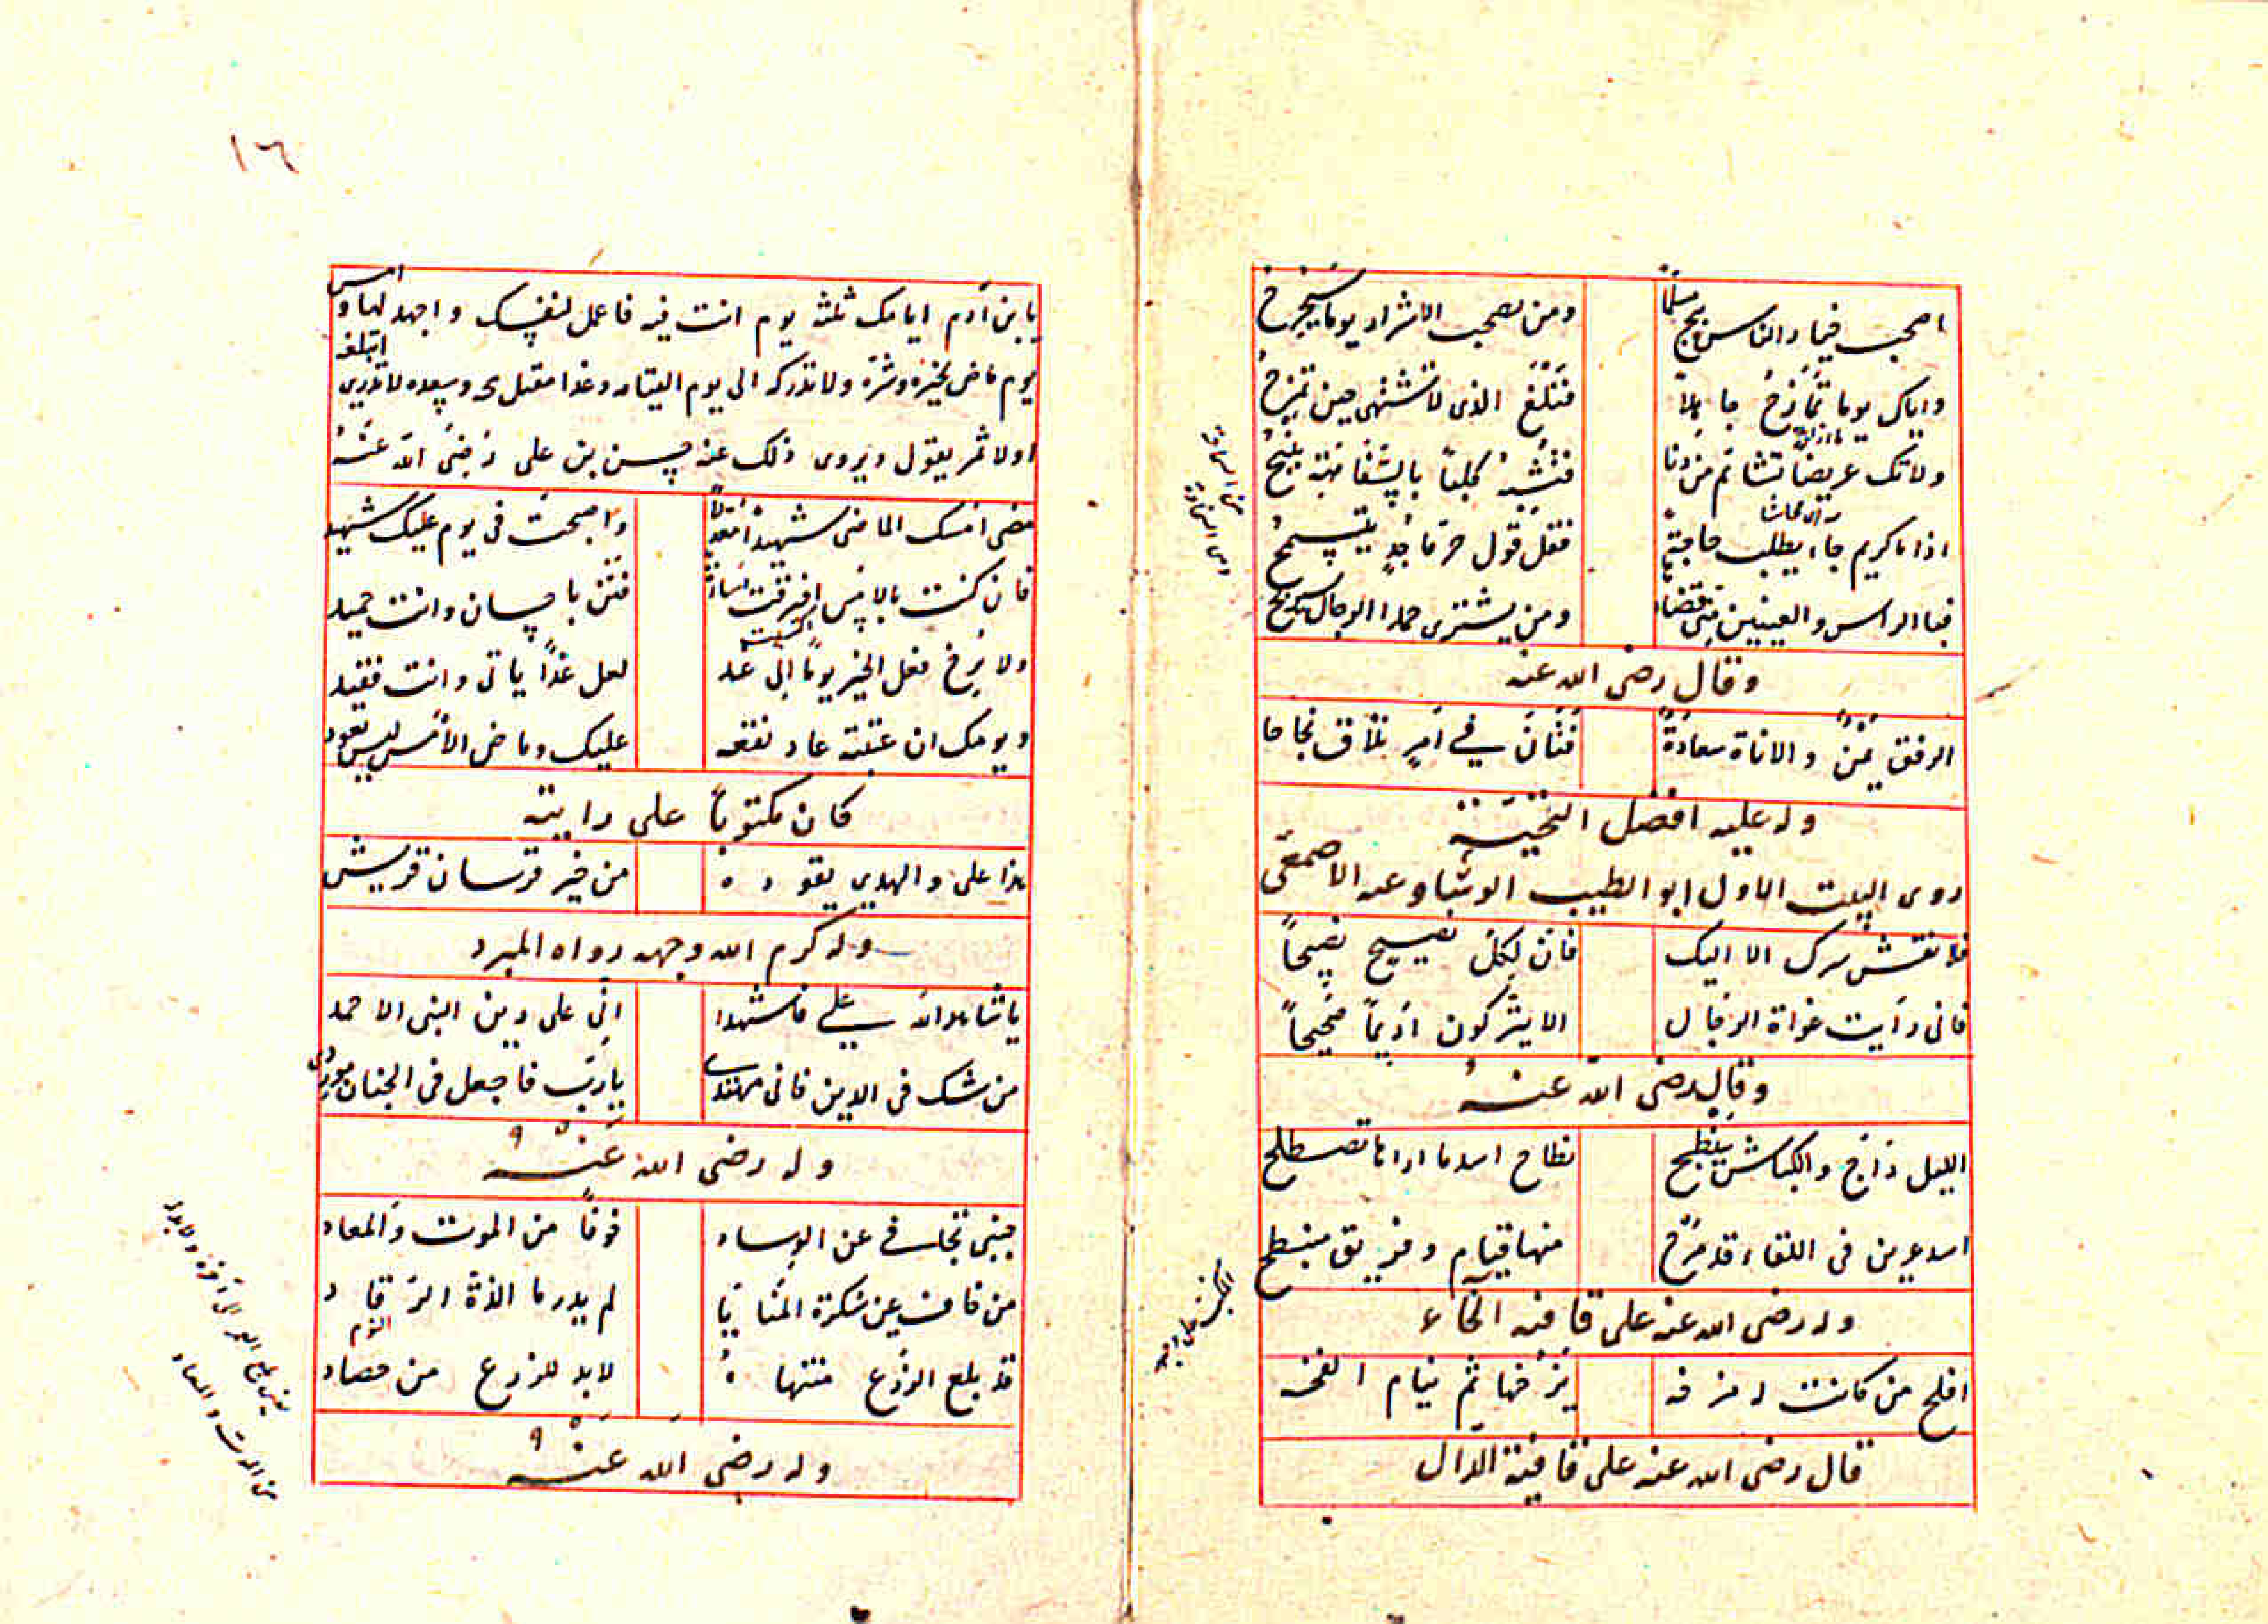 اصحب خيار الناس تنج مسلّما ومن يصحب الاشرار يوما سيجرح
واياك يوما تمازح جاهلا فتلق الذي لا تشتهي حين تمزح
ولا تك عريضا تشاتم من دنا فتشبه كلبا بالسفاهة ينبح
اذا ما كريم جاء يطلب حاجة فقل قول حر ماجد يتسمح
فبالراس والعينين مني قضاؤها ومن يشتري حمد الرجال سيربح
وقال رضى الله عنه
الرفق يمن والاناة سعادة فتان في امر تلاق نجاحا
وله عليه افضل التحية
روى البيت الاول ابو الطيب الوشاء عن الاصمعى
فلا تفش سرك الا اليك فان لكل نصيح نصيحاً
فانى رأيت غواة الرجال لا يتركون اديماً صحيحاً
وقال رضى الله عنه
الليل داج والكباش تنتطح نطاح اسد ما اراها تصطلح
اسد عرين فى اللقاء قد مرح منها قيام وفريق منبطح
وله رضى الله عنه على قافية الخاء
افلح من كانت له مزخه يزخها ثم ينام الفخه
قال رضى الله عنه على قافية الدال
١٦
يا بن آدم ايامك ثلثة يوم انت فيه فاعمل لنفسك واجهد لها وامس
يوم ماض بخيره وشره ولا تدركه الى يوم القيامة وغدا مقبل وسعده لا تدرى اتبلغه
اولا ثم يقول ويروى ذلك عنه حسن بن على رضى الله عنه
مضى امسك الماضى شهيدا معدلا واصبحت فى يوم عليك شهيد
فان كنت بالامس اقترفت اساءة فثن باحسان وانت حميد
ولا ترج فعل الخير يوما الى غد لعل غدا ياتى وانت فقيد
ويومك ان عتبته عاد نفعه عليك وماضى الامس ليس يعود
كان مكتوباً على رايته
هذا على والهدى يقوده من خير فرسان قريش
وله كرم الله وجهه رواه المبرد
يا شاهد الله علي فاشهد انى على دين النبى الاحمد
من شك فى الدين فانى مهتدى يا رب فاجعل فى الجنان موردى
وله رضى الله عنه
جنبى تجافى عن الوساد خوفاً من الموت والمعاد
من خاف عن سكرة المنايا لم يدر ما لذة الرقاد
النوم
قد بلغ الزرع منتهاه لا بد للزرع من حصاد
وله رضى الله عنه